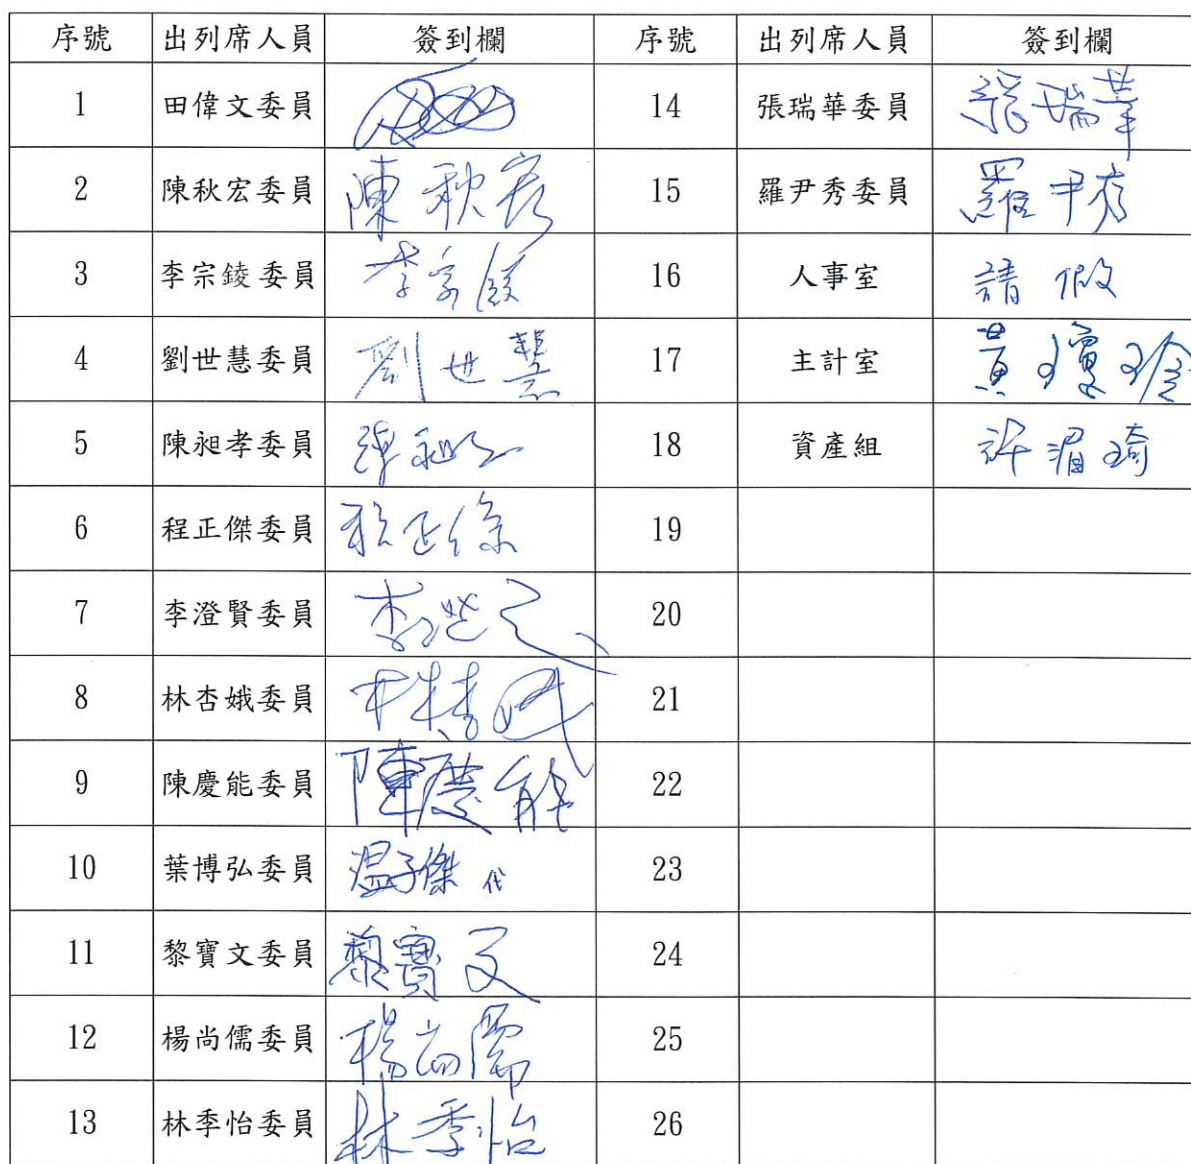 序號 出列席人員 簽到欄 序號 出列席人員 簽到欄
1 田偉文委員 14 張瑞華委員 張瑞華
2 陳秋宏委員 陳秋宏 15 羅尹秀委員 羅尹秀
3 李宗錂委員 李宗錂 16 人事室 請假
4 劉世慧委員 劉世慧 17 主計室 黃瓊玲
5 陳昶孝委員 陳昶孝 18 資產組 許湄琦
6 程正傑委員 程正傑 19
7 李澄賢委員 20
8 林杏娥委員 21
9 陳慶能委員 陳慶能 22
10 葉博弘委員 溫子傑 代 23
11 黎寶文委員 黎寶文 24
12 楊尚儒委員 楊尚儒 25
13 林季怡委員 林季怡 26